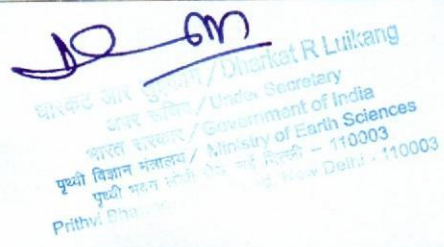 धारकट आर / Dharkat R Luikang
अवर सचिव / Under Secretary
भारत सरकार / Government of India
पृथ्वी विज्ञान मंत्रालय / Ministry of Earth Sciences
पृथ्वी भवन लोधी रोड नई दिल्ली – 110003
Prithvi New Delhi - 110003